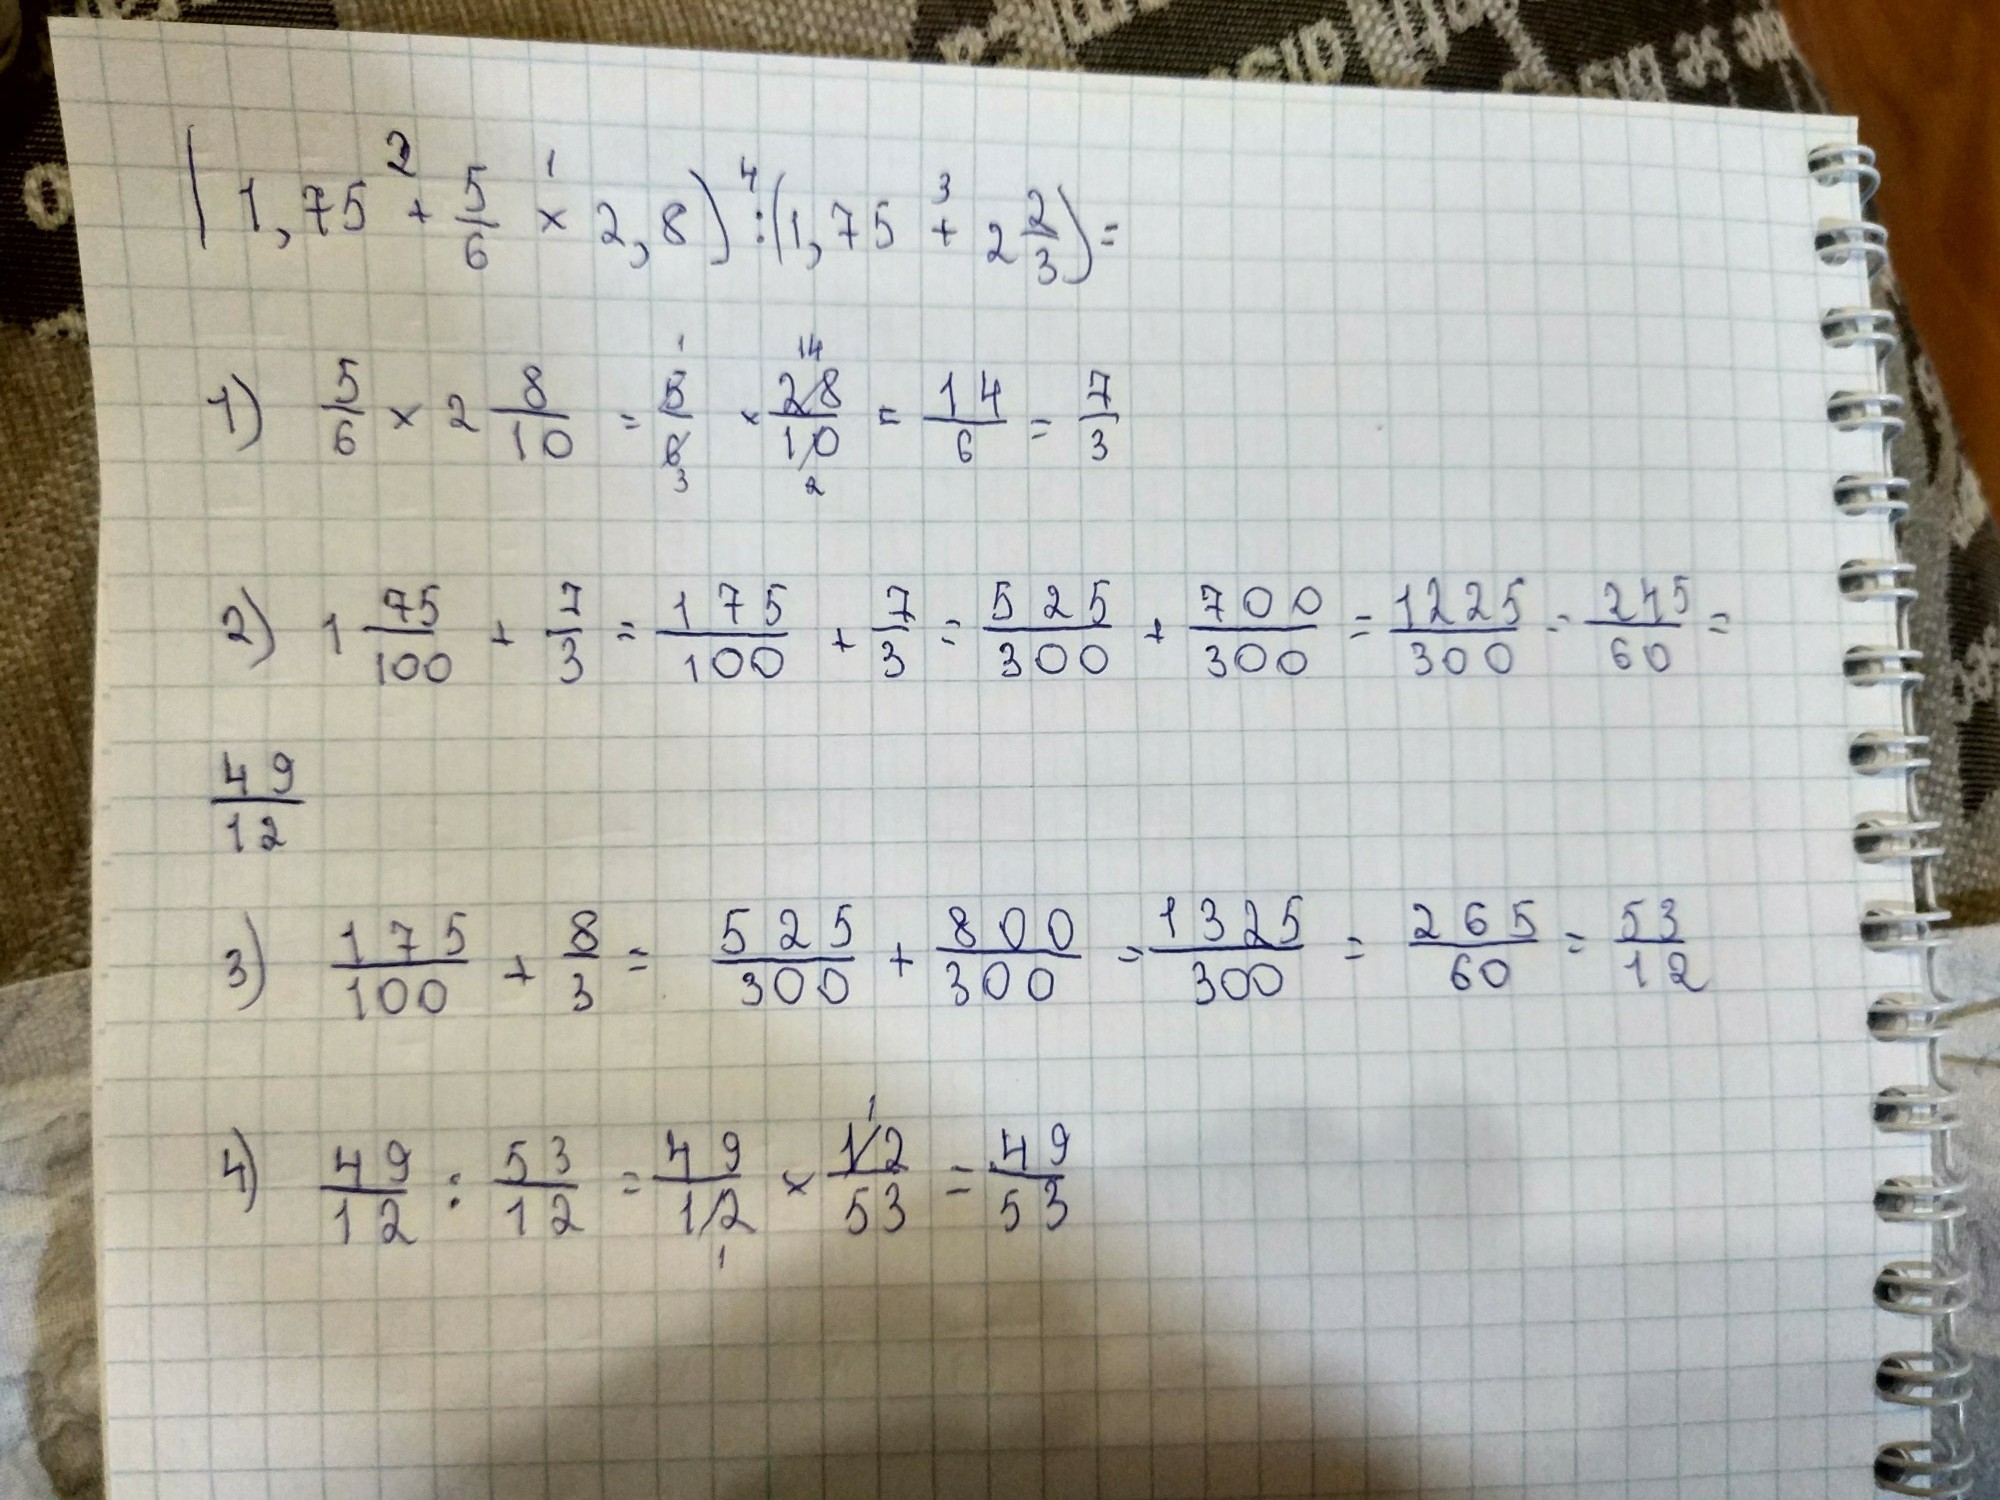 (1,75 + 5/6 × 2,8) : (1,75 + 2 2/3) =
2 1 4 3
1) 5/6 × 2 8/10 = 5/6 × 28/10 = 14/6 = 7/3
1 14 3 2
2) 1 75/100 + 7/3 = 175/100 + 7/3 = 525/300 + 700/300 = 1225/300 = 245/60 =
49/12
3) 175/100 + 8/3 = 525/300 + 800/300 = 1325/300 = 265/60 = 53/12
4) 49/12 : 53/12 = 49/12 × 12/53 = 49/53
1 1